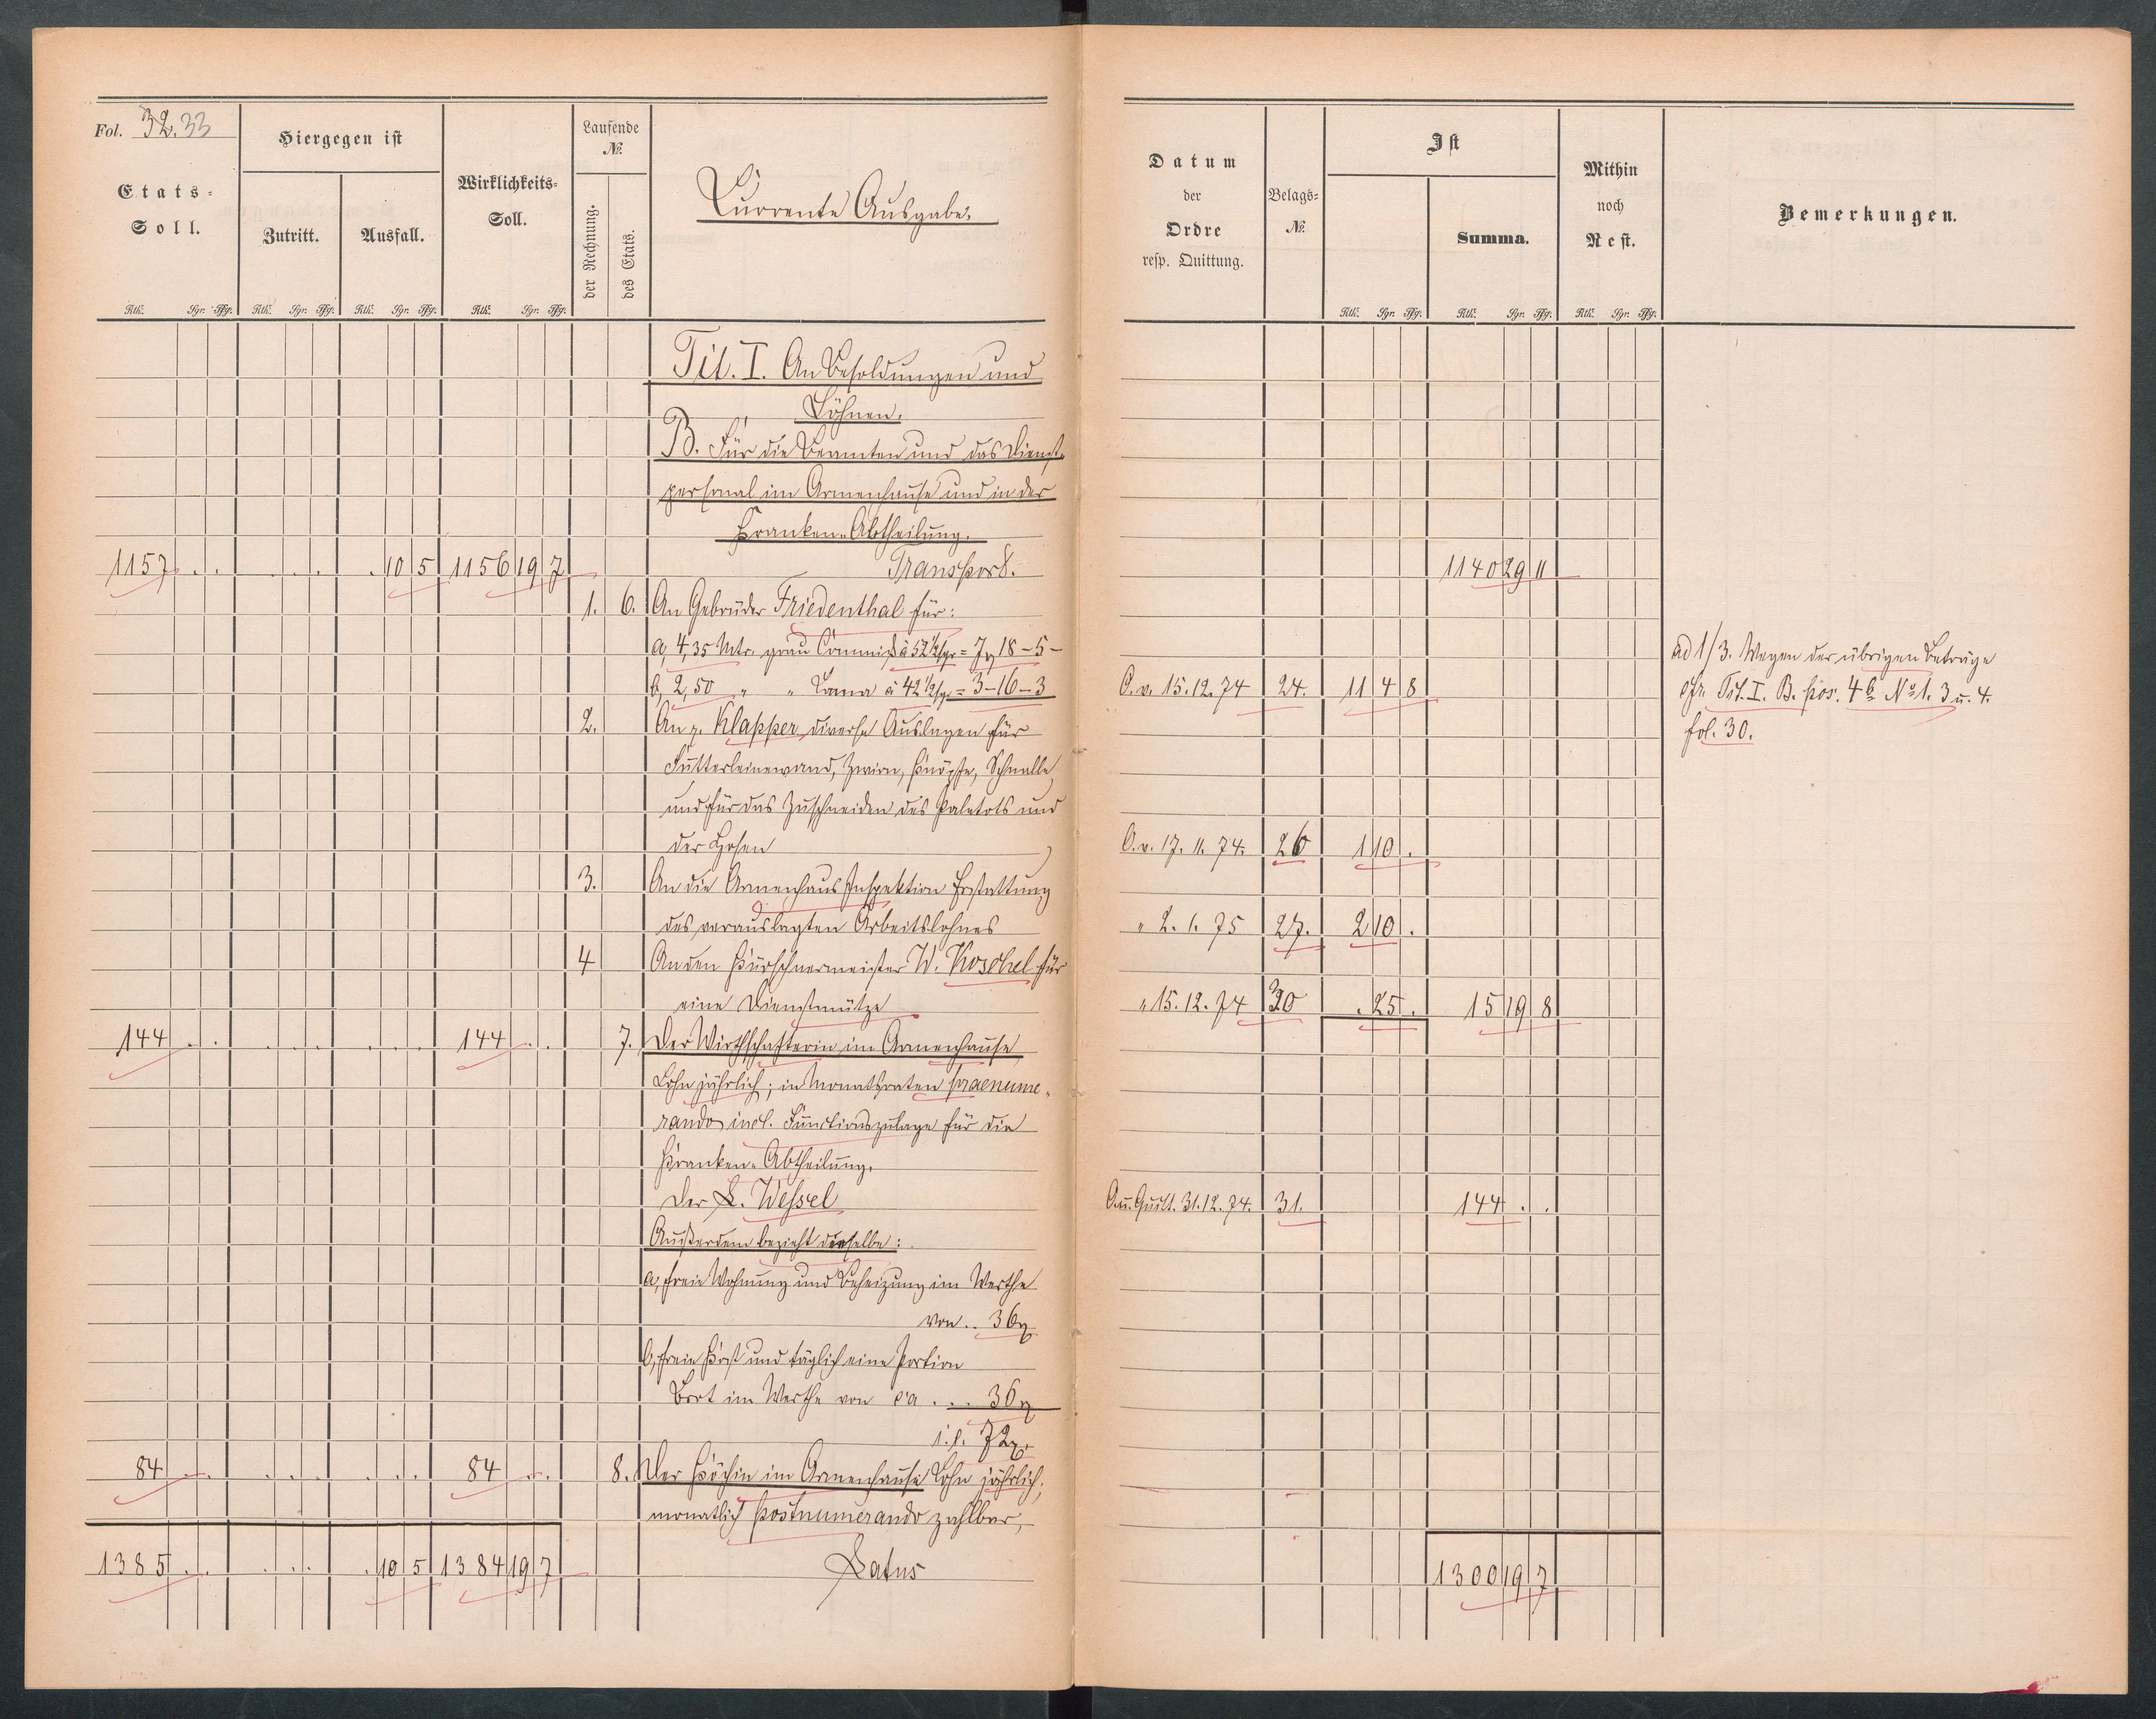 Fol. 32.33
Etats-Soll.
Hiergegen ist
Zutritt.
Ausfall.
Wirklichkeits-Soll.
Laufende №.
der Rechnung.
des Etats.
Currente Ausgabe.
Rtlr. Sgr. Pfg. Rtlr. Sgr. Pfg. Rtlr. Sgr. Pfg. Rtlr. Sgr. Pfg.
Tit. I. An Besoldungen und
Löhnen.
B. Für die Beamten und das Dienst-
personal im Armenhause und in der
Kranken-Abtheilung.
1157 . . . . . . 10 5 1156 19 7 Transport.
1. 6. An Gebrüder Friedenthal für:
a, 4,35 Mtr. grau Commiß à 52 1/2 sgr = 7 18 - 5 -
b, 2,50 " " Lama à 42 1/2 sgr = 3 - 16 - 3
2. An p. Klapper diverse Auslagen für
Futterleinewand, Zwirn, Knöpfe, Schnalle
und für das Zuschneiden des Paletots und
der Hosen
3. An die Armenhaus Inspektion Erstattung
des verauslagten Arbeitslohnes
4 An den Kürschnermeister W. Koschel für
eine Dienstmütze
144 . . . . . . . . 144 . . 7. Der Wirthschafterin im Armenhause
Lohn jährlich; in Monatsraten praenume-
rando incl. Functionszulage für die
Kranken-Abtheilung.
der L. Wessel
Außerdem bezieht dieselbe:
a, freie Wohnung und Beheizung im Werthe
von .. 36
b, freie Kost und täglich eine Portion
Brot im Werthe von ca ... 36
72
84 . . . . . . . . 84 . . 8. Der Köchin im Armenhause Lohn jährlich;
monatlich postnumerando zahlbar,
1385 . . . . . . 10 5 1384 19 7 Latus
Datum
der
Ordre
resp. Quittung.
Belags-
№.
Ist
Summa.
Mithin
noch
Rest.
Bemerkungen.
Rtlr. Sgr. Pfg. Rtlr. Sgr. Pfg. Rtlr. Sgr. Pfg.
1140 29 11
O. v. 15.12.74 24. 11 4 8
O. v. 17.11.74. 26 1 10 .
" 2.1.75 27. 2 10 .
" 15.12.74 30 . 25 . 15 19 8
O. u. Quitt. 31.12.74. 31. 144 . .
1300 19 7
ad 1/3. Wegen der übrigen Beträge
cfr. Tit. I. B. pos. 4b No 1. 3 u. 4.
fol. 30.